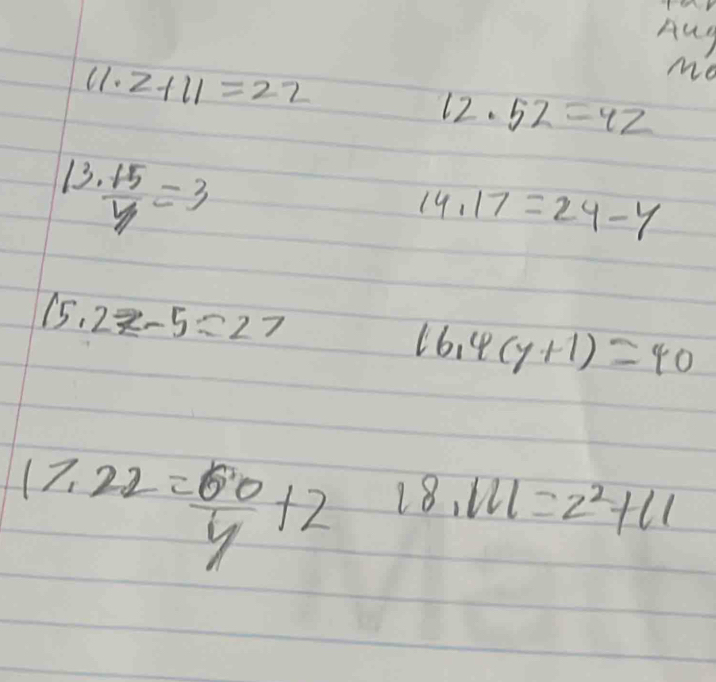 Aug
11. z+11 = 22
12. 5z = 42
13. 15/y = 3
14. 17 = 24 - y
15. 2z - 5 = 27
16. 4(y+1) = 40
17. 22 = 60/y + 2
18. 111 = z² + 11